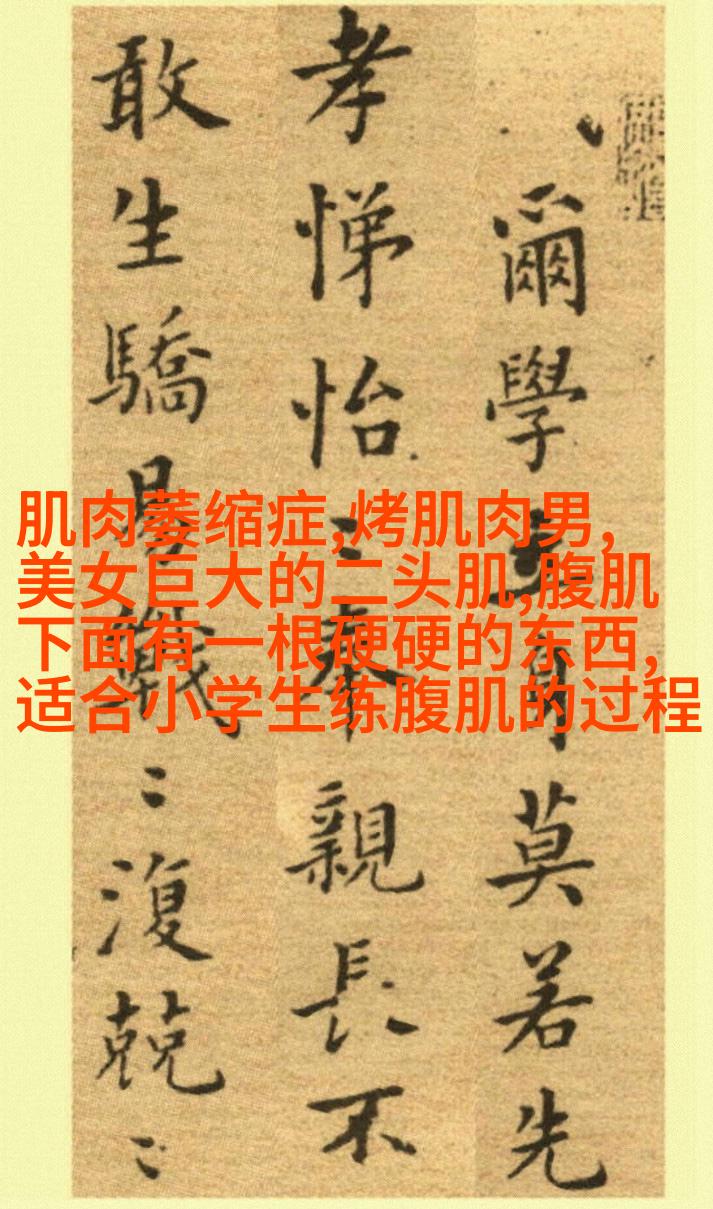 爾學立身莫若先
孝悌怡〻奉親長不
敢生驕易戰〻復兢〻
肌肉萎缩症,烤肌肉男,
美女巨大的二头肌,腹肌
下面有一根硬硬的东西,
适合小学生练腹肌的过程